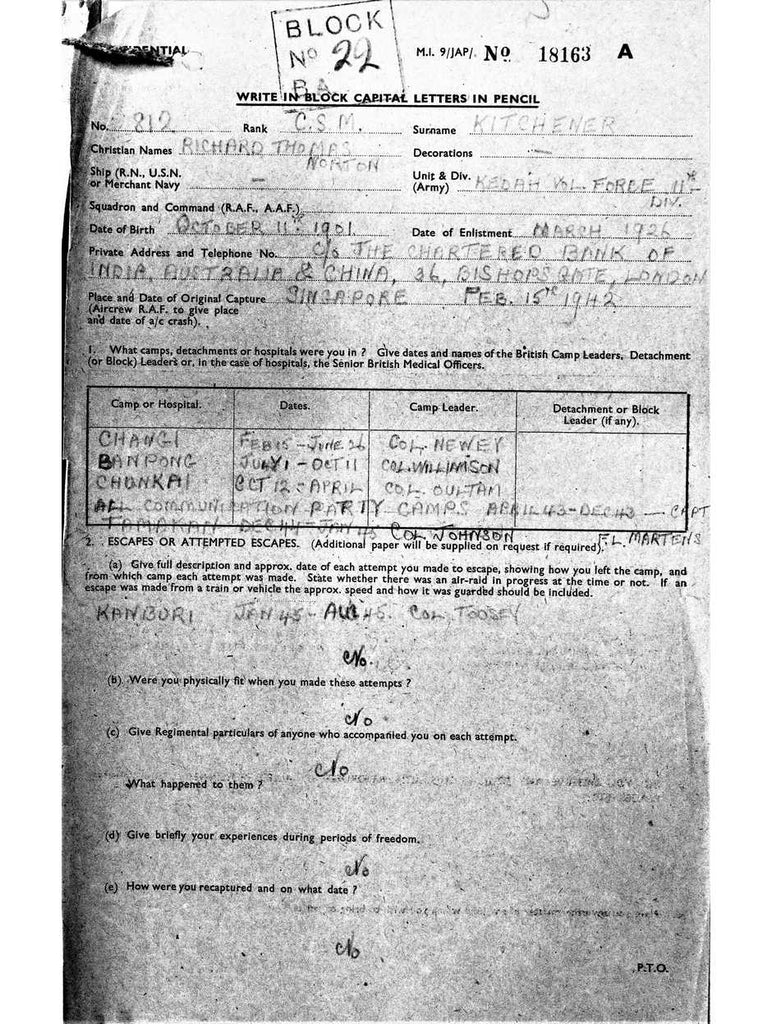 BLOCK
No 22
BA
CONFIDENTIAL
M.I. 9/JAP/. No. 18163 A
WRITE IN BLOCK CAPITAL LETTERS IN PENCIL
No. 812 Rank C.S.M. Surname KITCHENER
Christian Names RICHARD THOMAS NORTON Decorations —
Ship (R.N., U.S.N. or Merchant Navy — Unit & Div. (Army) KEDAH VOL. FORCE 11th DIV.
Squadron and Command (R.A.F., A.A.F.)
Date of Birth OCTOBER 11th 1901 Date of Enlistment MARCH 1926
Private Address and Telephone No. C/o THE CHARTERED BANK OF
INDIA, AUSTRALIA & CHINA, 36, BISHOPSGATE, LONDON
Place and Date of Original Capture SINGAPORE FEB. 15th 1942
(Aircrew R.A.F. to give place
and date of a/c crash).
1. What camps, detachments or hospitals were you in ? Give dates and names of the British Camp Leaders, Detachment
(or Block) Leaders or, in the case of hospitals, the Senior British Medical Officers.
Camp or Hospital. Dates. Camp Leader. Detachment or Block Leader (if any).
CHANGI FEB 15 - JUNE 26 COL. NEWEY
BANPONG JULY 1 - OCT 11 COL. WILLIAMSON
CHUNKAI OCT 12 - APRIL COL. OULTAM
ALL COMMUNICATION PARTY CAMPS APRIL 43 - DEC 43 — CAPT
TAMAKAN DEC 44 - JAN 45 COL JOHNSON F.L. MARTENS
2. ESCAPES OR ATTEMPTED ESCAPES. (Additional paper will be supplied on request if required).
(a) Give full description and approx. date of each attempt you made to escape, showing how you left the camp, and
from which camp each attempt was made. State whether there was an air-raid in progress at the time or not. If an
escape was made from a train or vehicle the approx. speed and how it was guarded should be included.
KANBURI JAN 45 - AUG 45. COL. TOOSEY
No.
(b) Were you physically fit when you made these attempts ?
No
(c) Give Regimental particulars of anyone who accompanied you on each attempt.
No
What happened to them ?
(d) Give briefly your experiences during periods of freedom.
No
(e) How were you recaptured and on what date ?
No
P.T.O.